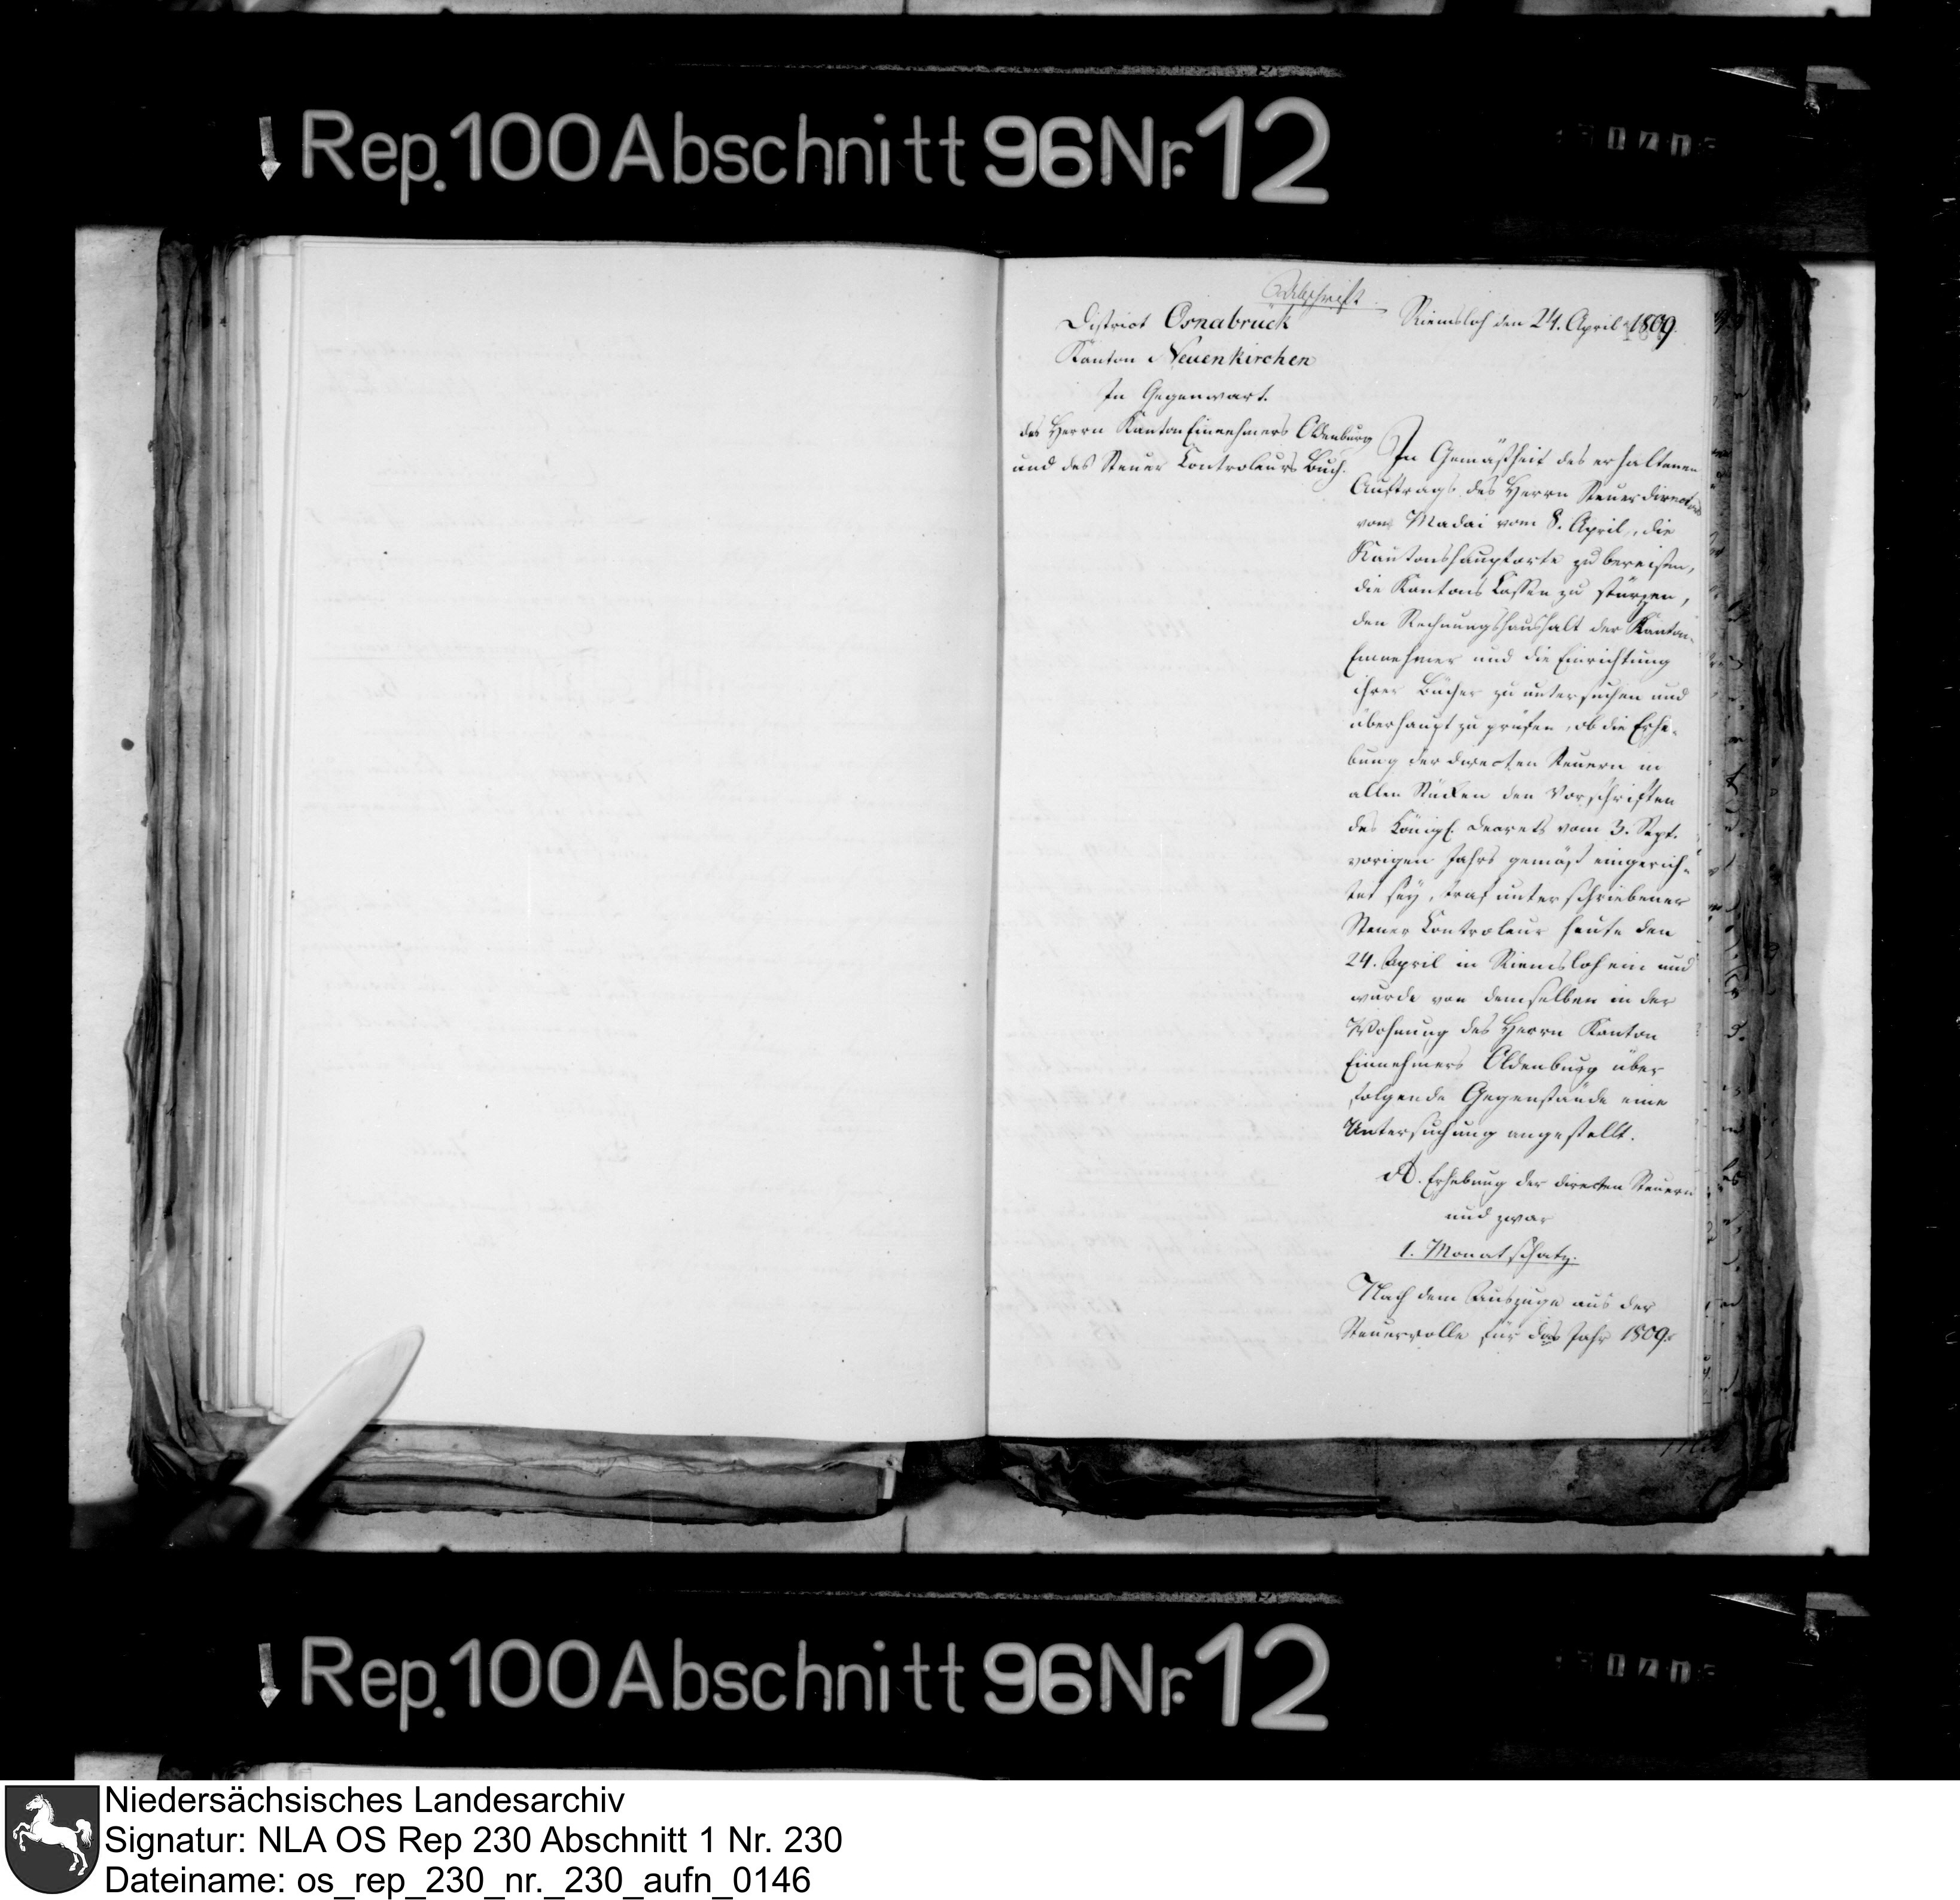 Rep. 100 Abschnitt 96 Nr. 12
Abschrift.
District Osnabrück
Riemsloh den 24. April 1809.
Kanton Neuenkirchen
In Gegenwart.
des Herrn Kanton Einnehmers Oldenburg
und des Steuer Controleurs Buch.
In Gemäßheit des erhaltenen
Auftrags des Herrn Steuerdirectors
von Madai vom 8. April, die
Kantonshauptorte zu bereisen,
die Kantons Cassen zu stürzen,
den Rechnungshaushalt der Kanton-
Einnehmer und die Einrichtung
ihrer Bücher zu untersuchen und
überhaupt zu prüfen, ob die Erhe-
bung der directen Steuern in
allen Stücken den Vorschriften
des Königl. Decrets vom 3. Sept.
vorigen Jahrs gemäß eingerich-
tet sey, traf unterschriebener
Steuer Controleur heute den
24. April in Riemsloh ein und
wurde von demselben in der
Wohnung des Herrn Kanton
Einnehmers Oldenburg über
folgende Gegenstände eine
Untersuchung angestellt.
A. Erhebung der directen Steuern
und zwar
1. Monatschatz.
Nach dem Auszuge aus der
Steuerrolle für das Jahr 1809.
Rep. 100 Abschnitt 96 Nr. 12
Niedersächsisches Landesarchiv
Signatur: NLA OS Rep 230 Abschnitt 1 Nr. 230
Dateiname: os_rep_230_nr._230_aufn_0146